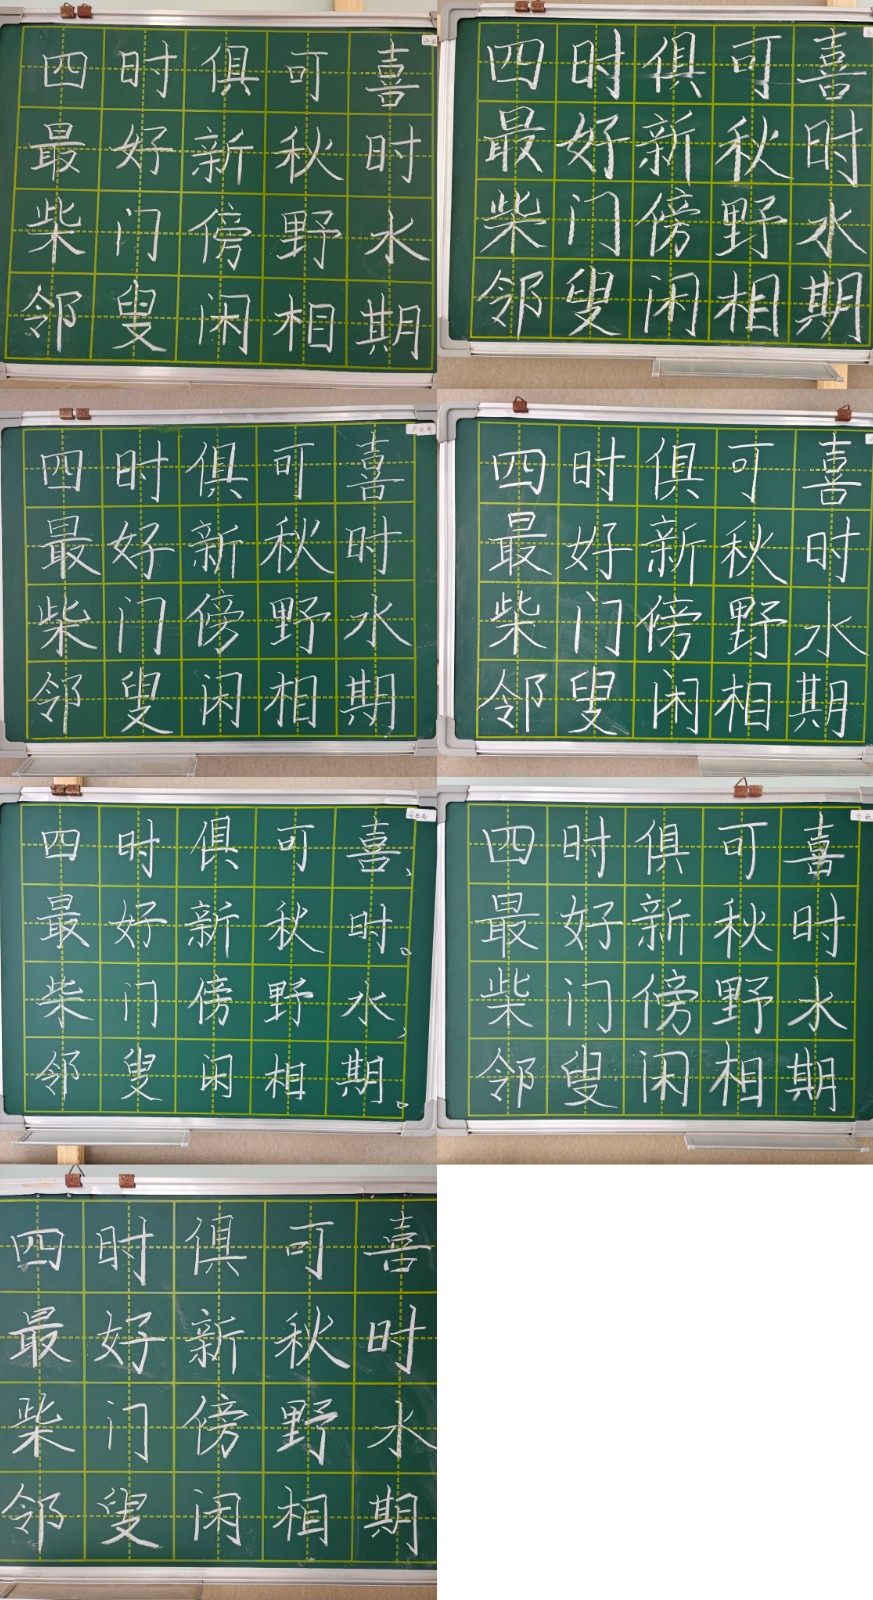 四时俱可喜
最好新秋时
柴门傍野水
邻叟闲相期
四时俱可喜
最好新秋时
柴门傍野水
邻叟闲相期
四时俱可喜
最好新秋时
柴门傍野水
邻叟闲相期
四时俱可喜
最好新秋时
柴门傍野水
邻叟闲相期
四时俱可喜，
最好新秋时。
柴门傍野水，
邻叟闲相期。
四时俱可喜
最好新秋时
柴门傍野水
邻叟闲相期
四时俱可喜
最好新秋时
柴门傍野水
邻叟闲相期